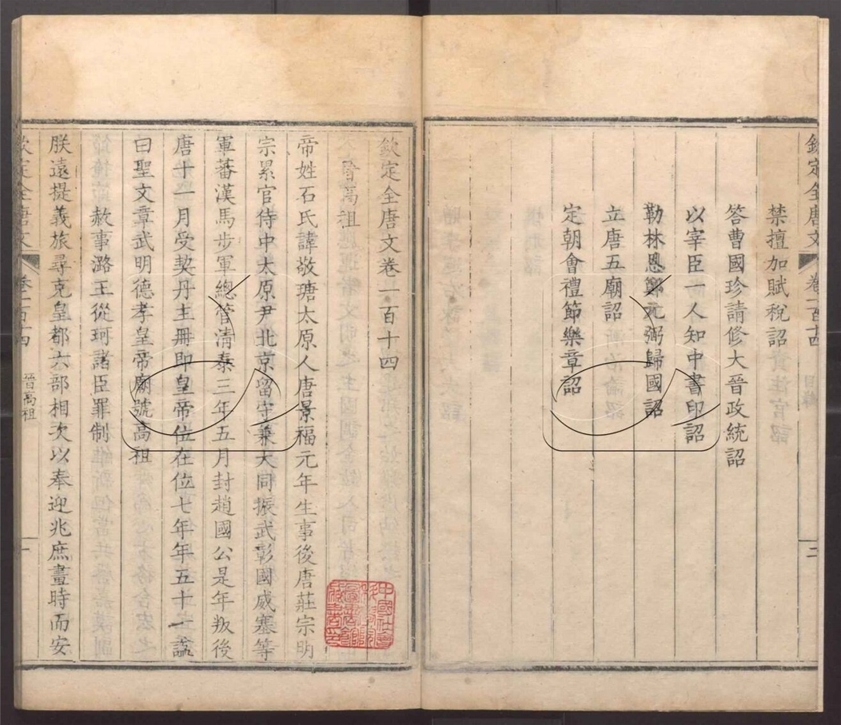 欽定全唐文 卷一百十四 目錄 二
禁擅加賦稅詔
答曹國珍請修大晉政統詔
以宰臣一人知中書印詔
勒林恩鄭元弼歸國詔
立唐五廟詔
定朝會禮節樂章詔
欽定全唐文卷一百十四
晉高祖
帝姓石氏諱敬瑭太原人唐景福元年生事後唐莊宗明
宗累官侍中太原尹北京留守兼大同振武彰國威塞等
軍蕃漢馬步軍總管清泰三年五月封趙國公是年叛後
唐十一月受契丹主冊即皇帝位在位七年年五十一諡
曰聖文章武明德孝皇帝廟號高祖
赦事潞王從珂諸臣罪制
朕遠提義旅尋克皇都六部相次以奉迎兆庶晝時而安
欽定全唐文 卷一百十四 晉高祖 一